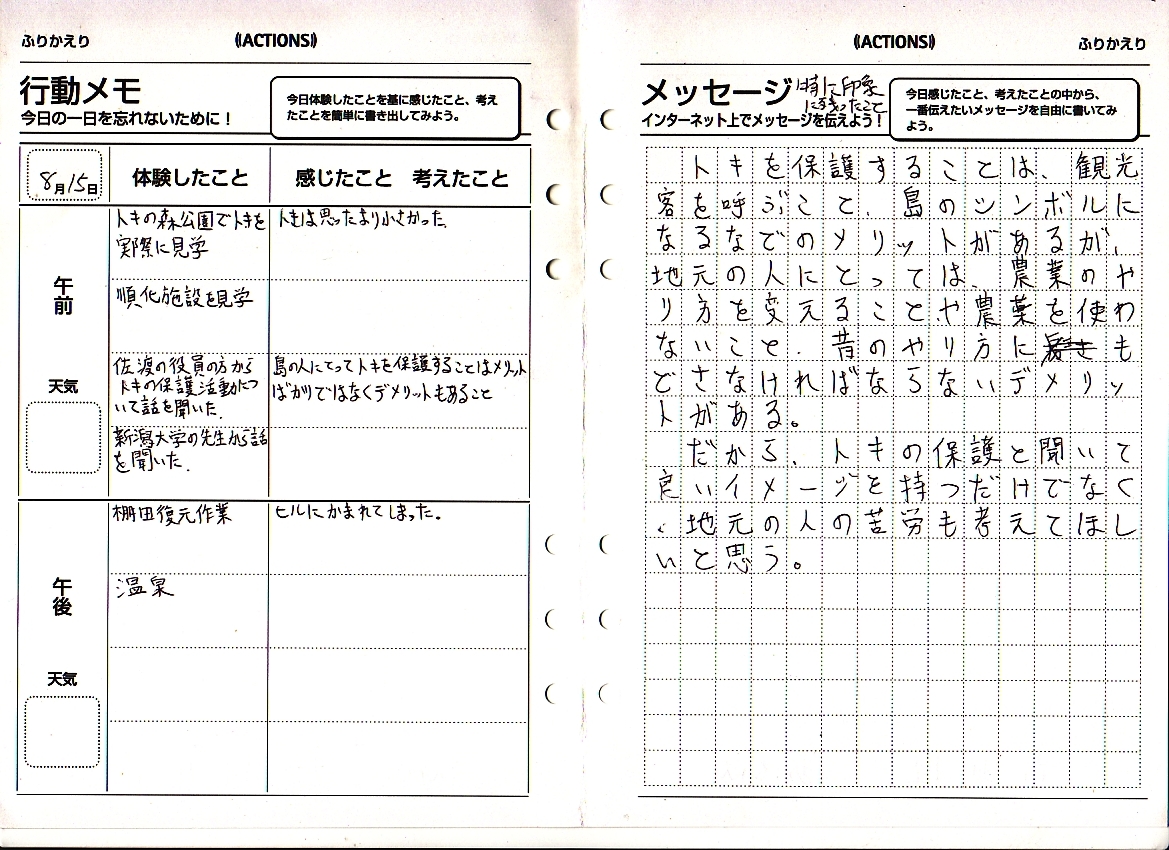 ふりかえり
((ACTIONS))
行動メモ
今日の一日を忘れないために！
今日体験したことを基に感じたこと、考え
たことを簡単に書き出してみよう。
8月15日
体験したこと
感じたこと 考えたこと
午前
天気
トキの森公園でトキを
実際に見学
トキは思ったより小さかった。
順化施設を見学
佐渡の役員の方から
トキの保護活動につ
いて話を聞いた。
島の人にてってトキを保護することはメリット
ばかりではなくデメリットもあること
新潟大学の先生から話
を聞いた。
午後
天気
棚田復元作業
ヒルにかまれてしまった。
温泉
((ACTIONS))
ふりかえり
メッセージ
特に印象
に残ったこと
インターネット上でメッセージを伝えよう！
今日感じたこと、考えたことの中から、
一番伝えたいメッセージを自由に書いてみ
よう。
トキを保護することは、観光
客を呼ぶこと、島のシンボルに
なるなでのメリットがあるが、
地元の人にとっては、農業のや
り方を変えることや農薬を使わ
ないこと、昔のやり方にも
どさなければならないデメリッ
トがある。
だから、トキの保護と聞いて
良いイメージを持つだけでなく
、地元の人の苦労も考えてほし
いと思う。